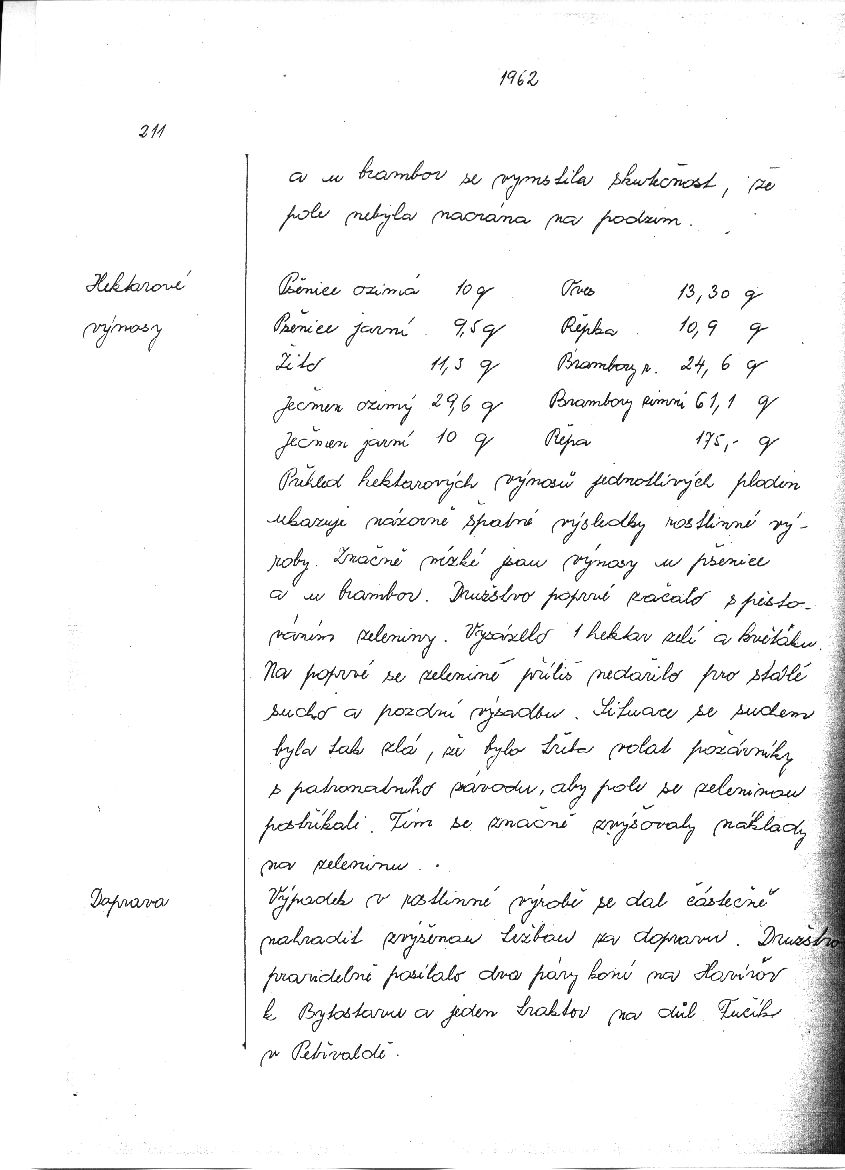 1962
211
a u brambor se vymstila skutečnost, že
pole nebyla naorána na podzim.
Hektarové
výnosy
Pšenice ozimá 10 q Oves 13,30 q
Pšenice jarní 9,5 q Řepka 10,9 q
Žito 11,3 q Brambory r. 24,6 q
Ječmen ozimý 29,6 q Brambory zimní 61,1 q
Ječmen jarní 10 q Řepa 175,- q
Přehled hektarových výnosů jednotlivých plodin
ukazuje názorně špatné výsledky rostlinné vý-
roby. Značně nízké jsou výnosy u pšenice
a u brambor. Družstvo poprvé začalo s pěsto-
váním zeleniny. Vysázelo 1 hektar zelí a květáku.
Na poprvé se zelenině příliš nedařilo pro stálé
sucho a pozdní výsadbu. Situace se suchem
byla tak zlá, že bylo třeba volat požárníky
s patronátního závodu, aby pole se zeleninou
postříkali. Tím se značně zvyšovaly náklady
na zeleninu.
Doprava
Výpadek v rostlinné výrobě se dal částečně
nahradit zvýšenou tržbou za dopravu. Družstvo
pravidelně posílalo dva páry koní na Havířov
k Bytostavu a jeden traktor na důl Fučík
v Petřvaldě.